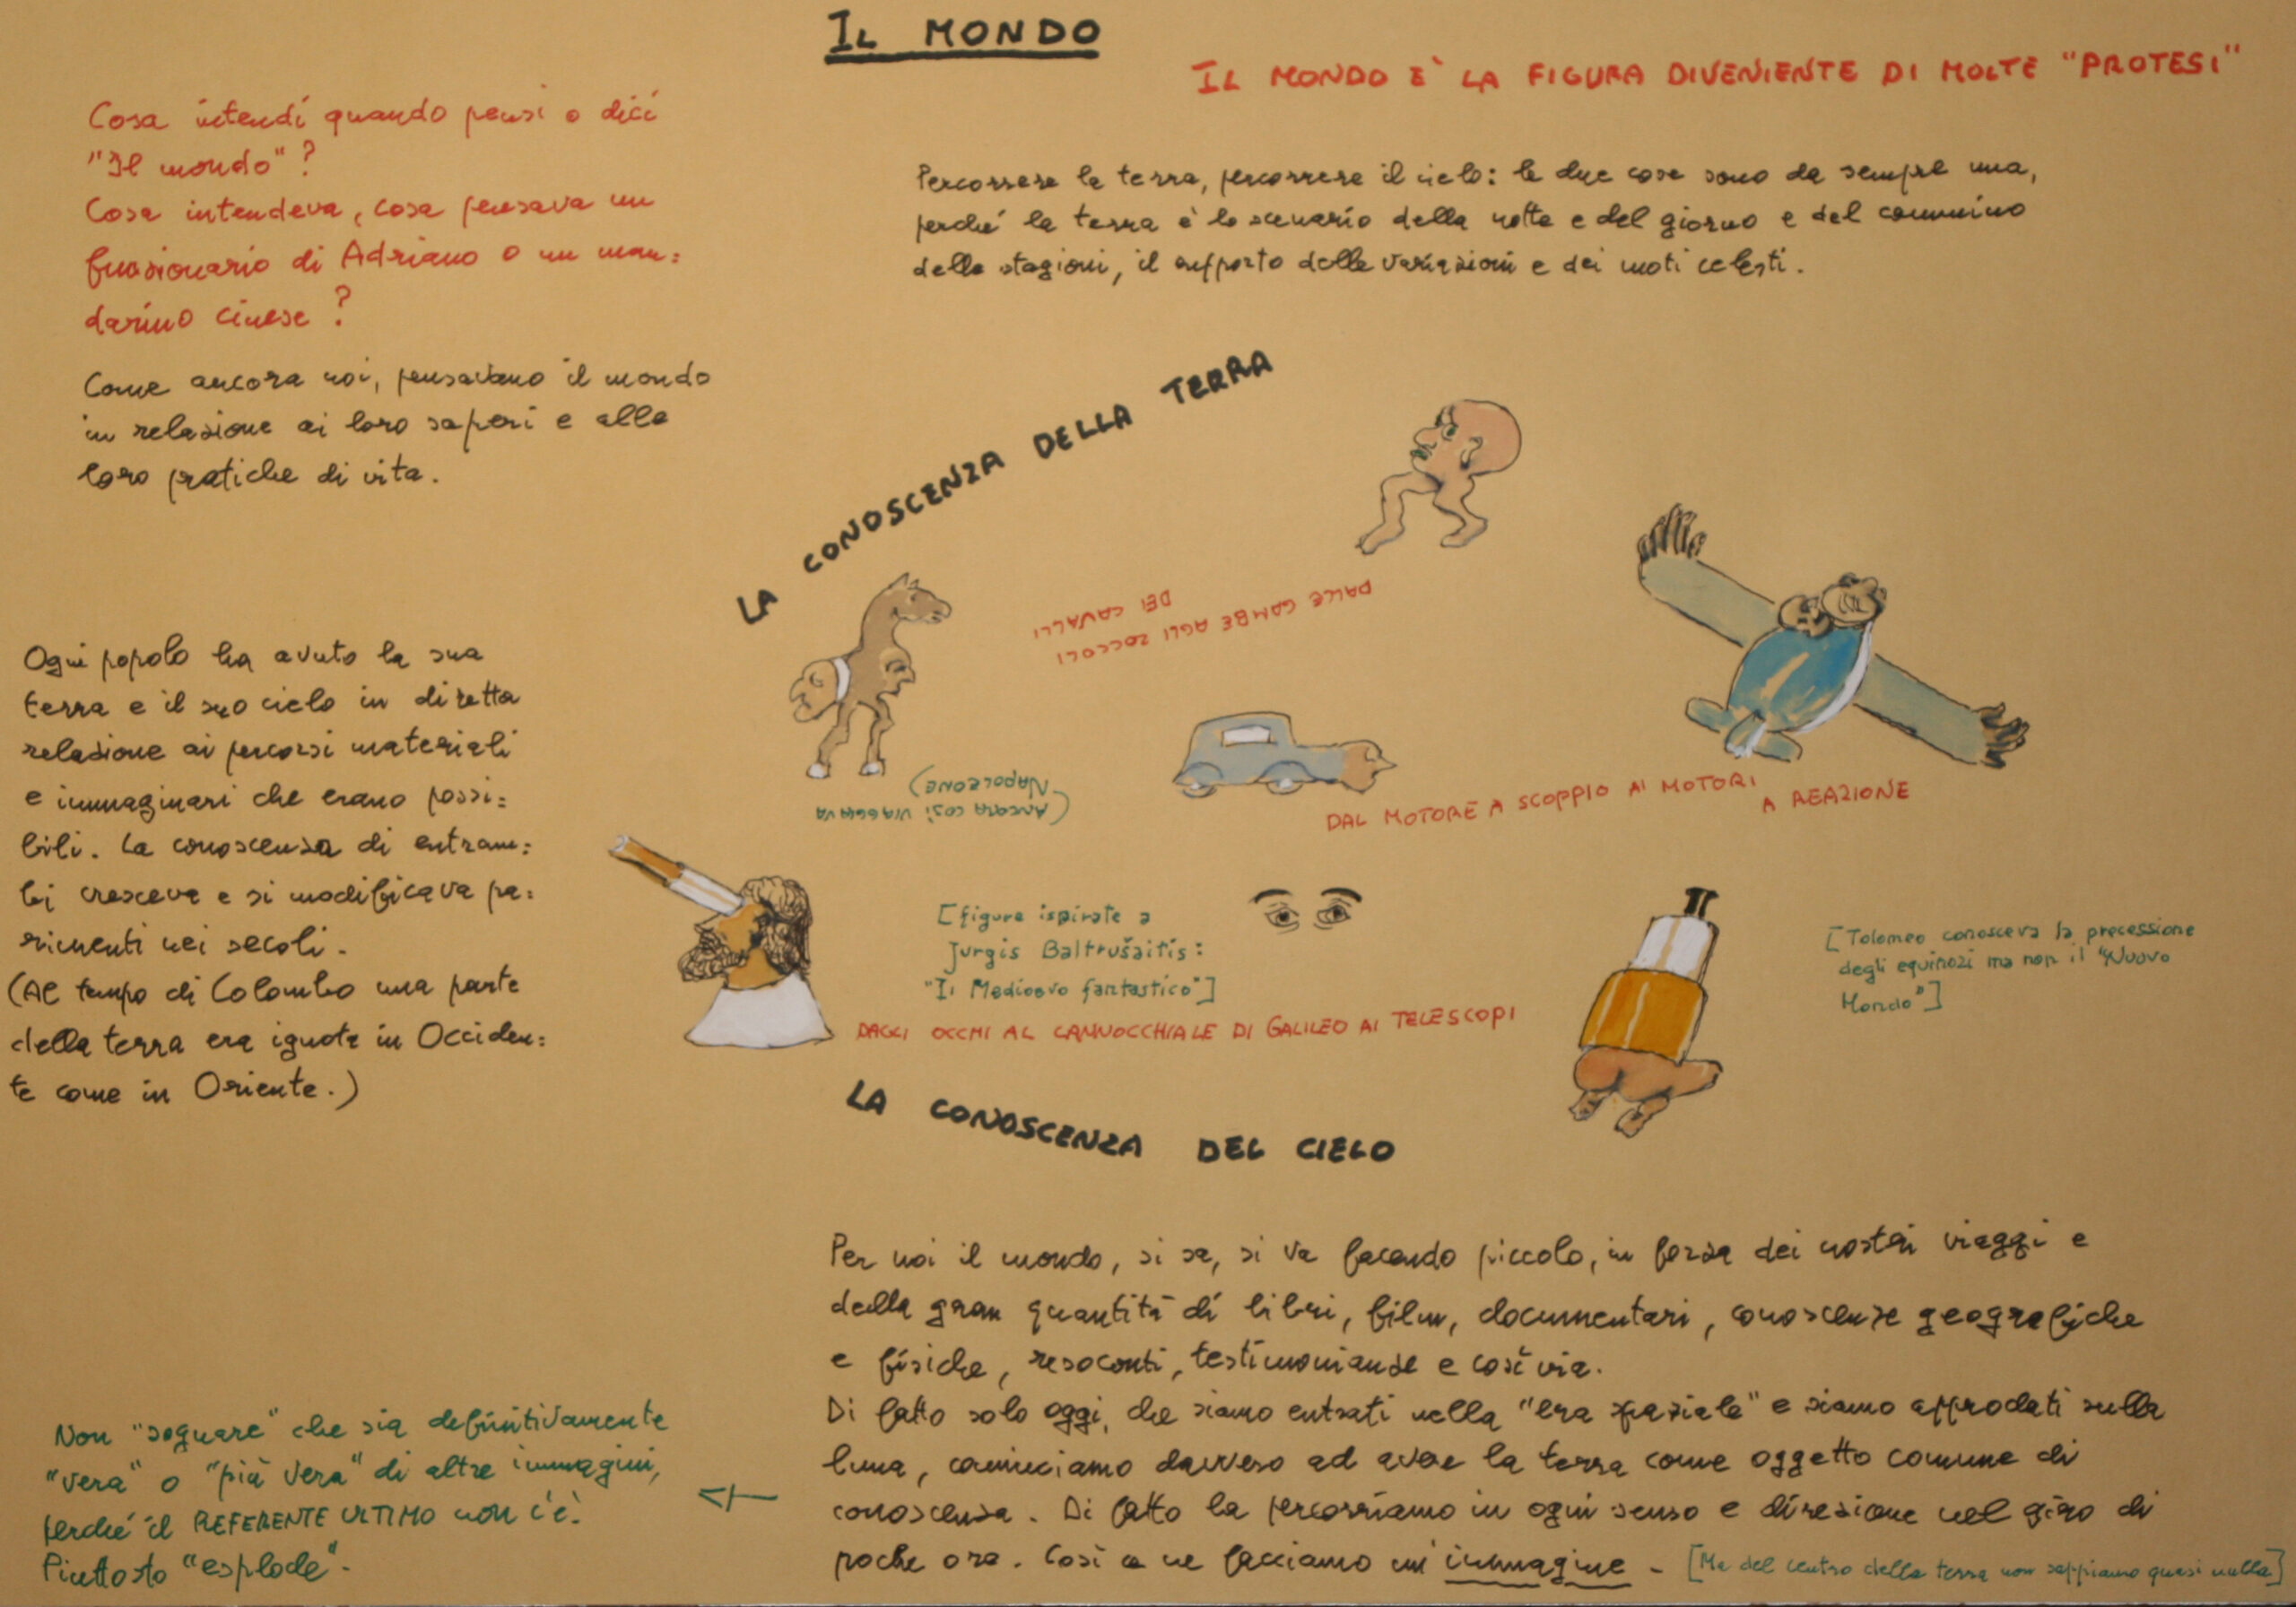 IL MONDO
IL MONDO E' LA FIGURA DIVENIENTE DI MOLTE "PROTESI"
Cosa intendi quando pensi o dici
"Il mondo"?
Cosa intendeva, cosa pensava un
funzionario di Adriano o un man=
darino cinese?
Come ancora noi, pensavano il mondo
in relazione ai loro saperi e alle
loro pratiche di vita.
Percorrere la terra, percorrere il cielo: le due cose sono da sempre una,
perché la terra è lo scenario della notte e del giorno e del cammino
delle stagioni, il supporto delle variazioni e dei moti celesti.
Ogni popolo ha avuto la sua
terra e il suo cielo in diretta
relazione ai percorsi materiali
e immaginari che erano possi=
bili. La conoscenza di entram=
bi cresceva e si modificava pa=
rimenti nei secoli.
(Al tempo di Colombo una parte
della terra era ignota in Occiden=
te come in Oriente.)
LA CONOSCENZA DELLA TERRA
DALLE GAMBE AGLI ZOCCOLI
DEI CAVALLI
(ANCORA COSÌ VIAGGIAVA
NAPOLEONE)
DAL MOTORE A SCOPPIO AI MOTORI
A REAZIONE
[figure ispirate a
Jurgis Baltrušaitis:
"Il Medioevo fantastico"]
[Tolomeo conosceva la precessione
degli equinozi ma non il "Nuovo
Mondo"]
DAGLI OCCHI AL CANNOCCHIALE DI GALILEO AI TELESCOPI
LA CONOSCENZA DEL CIELO
Per noi il mondo, si sa, si va facendo piccolo, in forza dei nostri viaggi e
della gran quantità di libri, film, documentari, conoscenze geografiche
e fisiche, resoconti, testimonianze e così via.
Di fatto solo oggi, che siamo entrati nella "era spaziale" e siamo approdati sulla
luna, cominciamo davvero ad avere la terra come oggetto comune di
conoscenza. Di fatto la percorriamo in ogni senso e direzione nel giro di
poche ore. Così ce ne facciamo un'immagine - [Ma del centro della terra non sappiamo quasi nulla]
Non "sognare" che sia definitivamente
"vera" o "più vera" di altre immagini,
perché il REFERENTE ULTIMO non c'è.
Piuttosto "esplode".